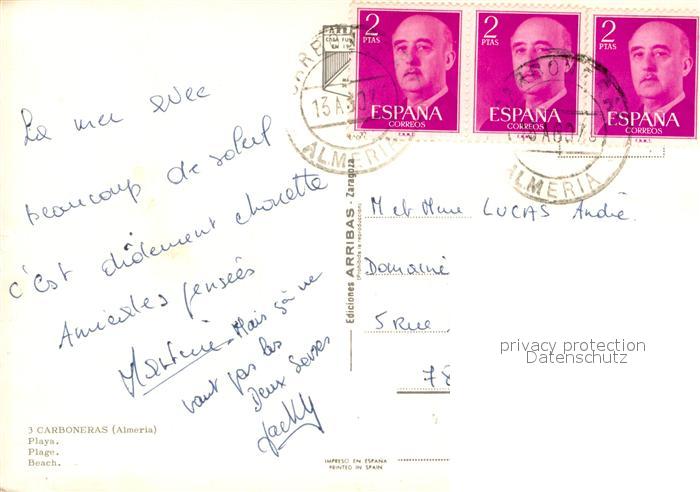 La mer avec
beaucoup de soleil
c'est drôlement chouette
Amicales pensées
Martine. Mais ça ne
vaut pas les
Deux Sèvres
Jacky
3 CARBONERAS (Almeria)
Playa.
Plage.
Beach.
Ediciones ARRIBAS - Zaragoza
(Prohibida la reproducción)
IMPRESO EN ESPAÑA
PRINTED IN SPAIN
2 PTAS
ESPAÑA
CORREOS
2 PTAS
ESPAÑA
CORREOS
2 PTAS
ESPAÑA
CORREOS
ALMERIA
ALMERIA
M et Mme LUCAS André.
Domaine
5 Rue
78
privacy protection
Datenschutz